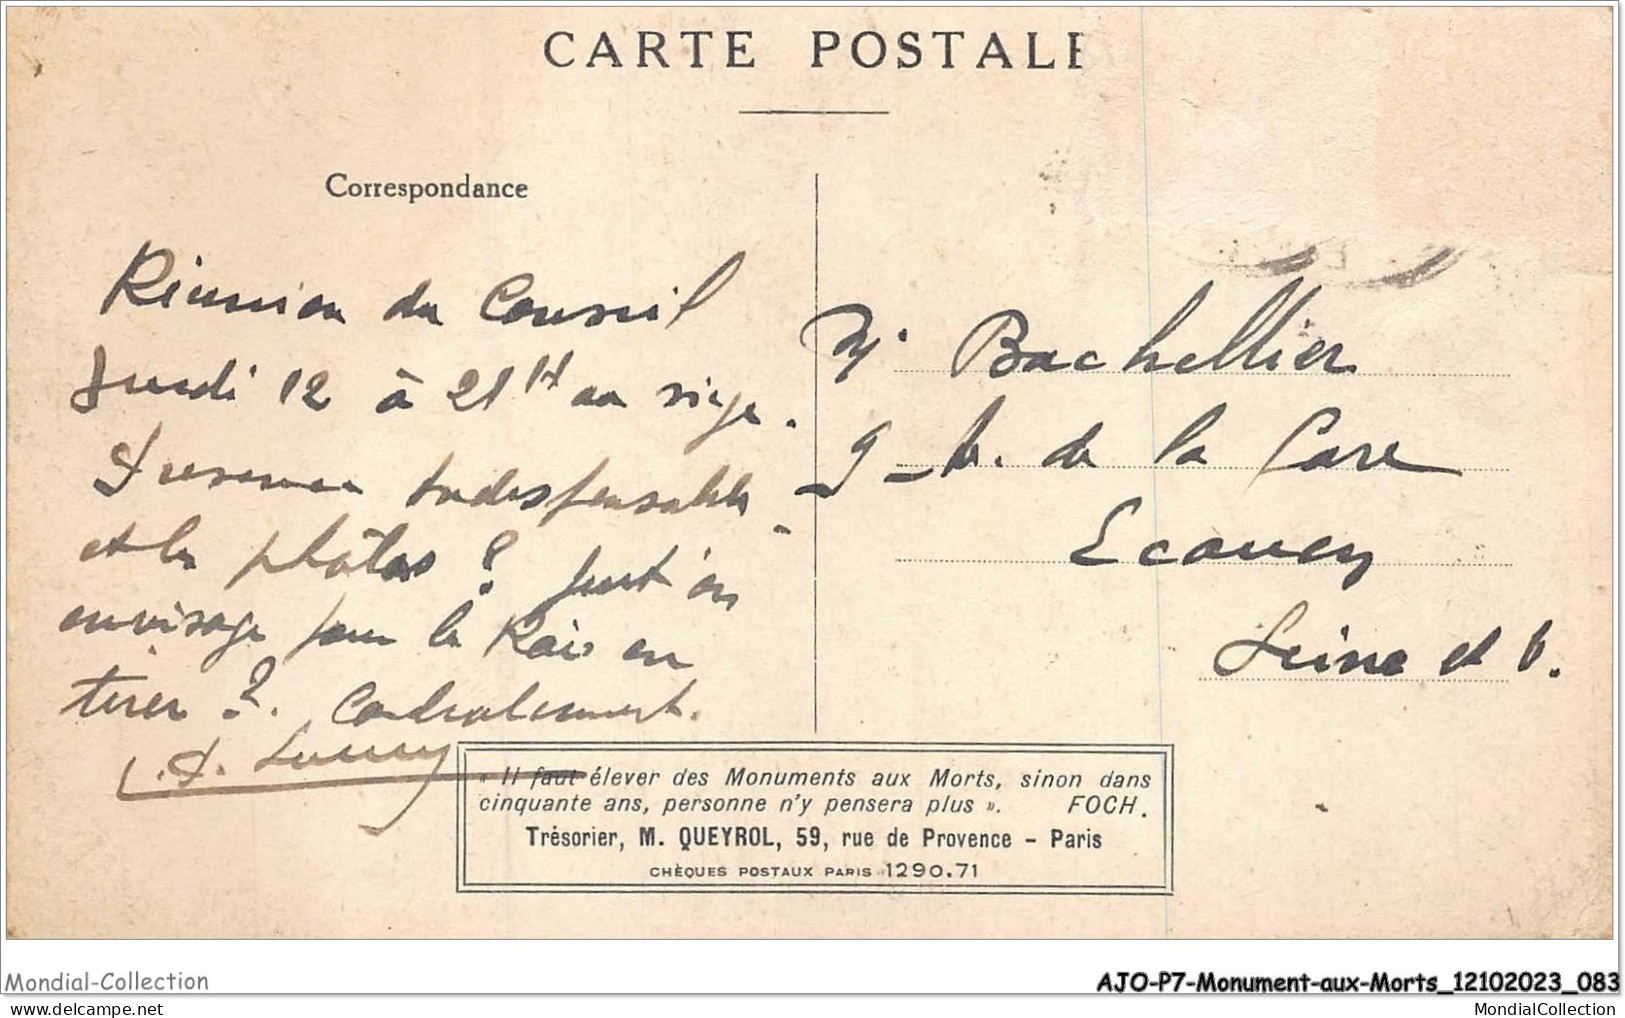 CARTE POSTALE
Correspondance
Réunion du Conseil
Jeudi 12 à 21 H au siège.
Presence indispensable
et les photos ? Peut on
envisager pour le Rais en
tirer ?. Cordialement.
M. Bachellier
9 de la Gare
Ecouen
Seine et O.
« Il faut élever des Monuments aux Morts, sinon dans
cinquante ans, personne n'y pensera plus ». FOCH.
Trésorier, M. QUEYROL, 59, rue de Provence - Paris
CHÈQUES POSTAUX PARIS 1290.71
Mondial-Collection
AJO-P7-Monument-aux-Morts_12102023_083
Mondial-Collection.com
MondialCollection